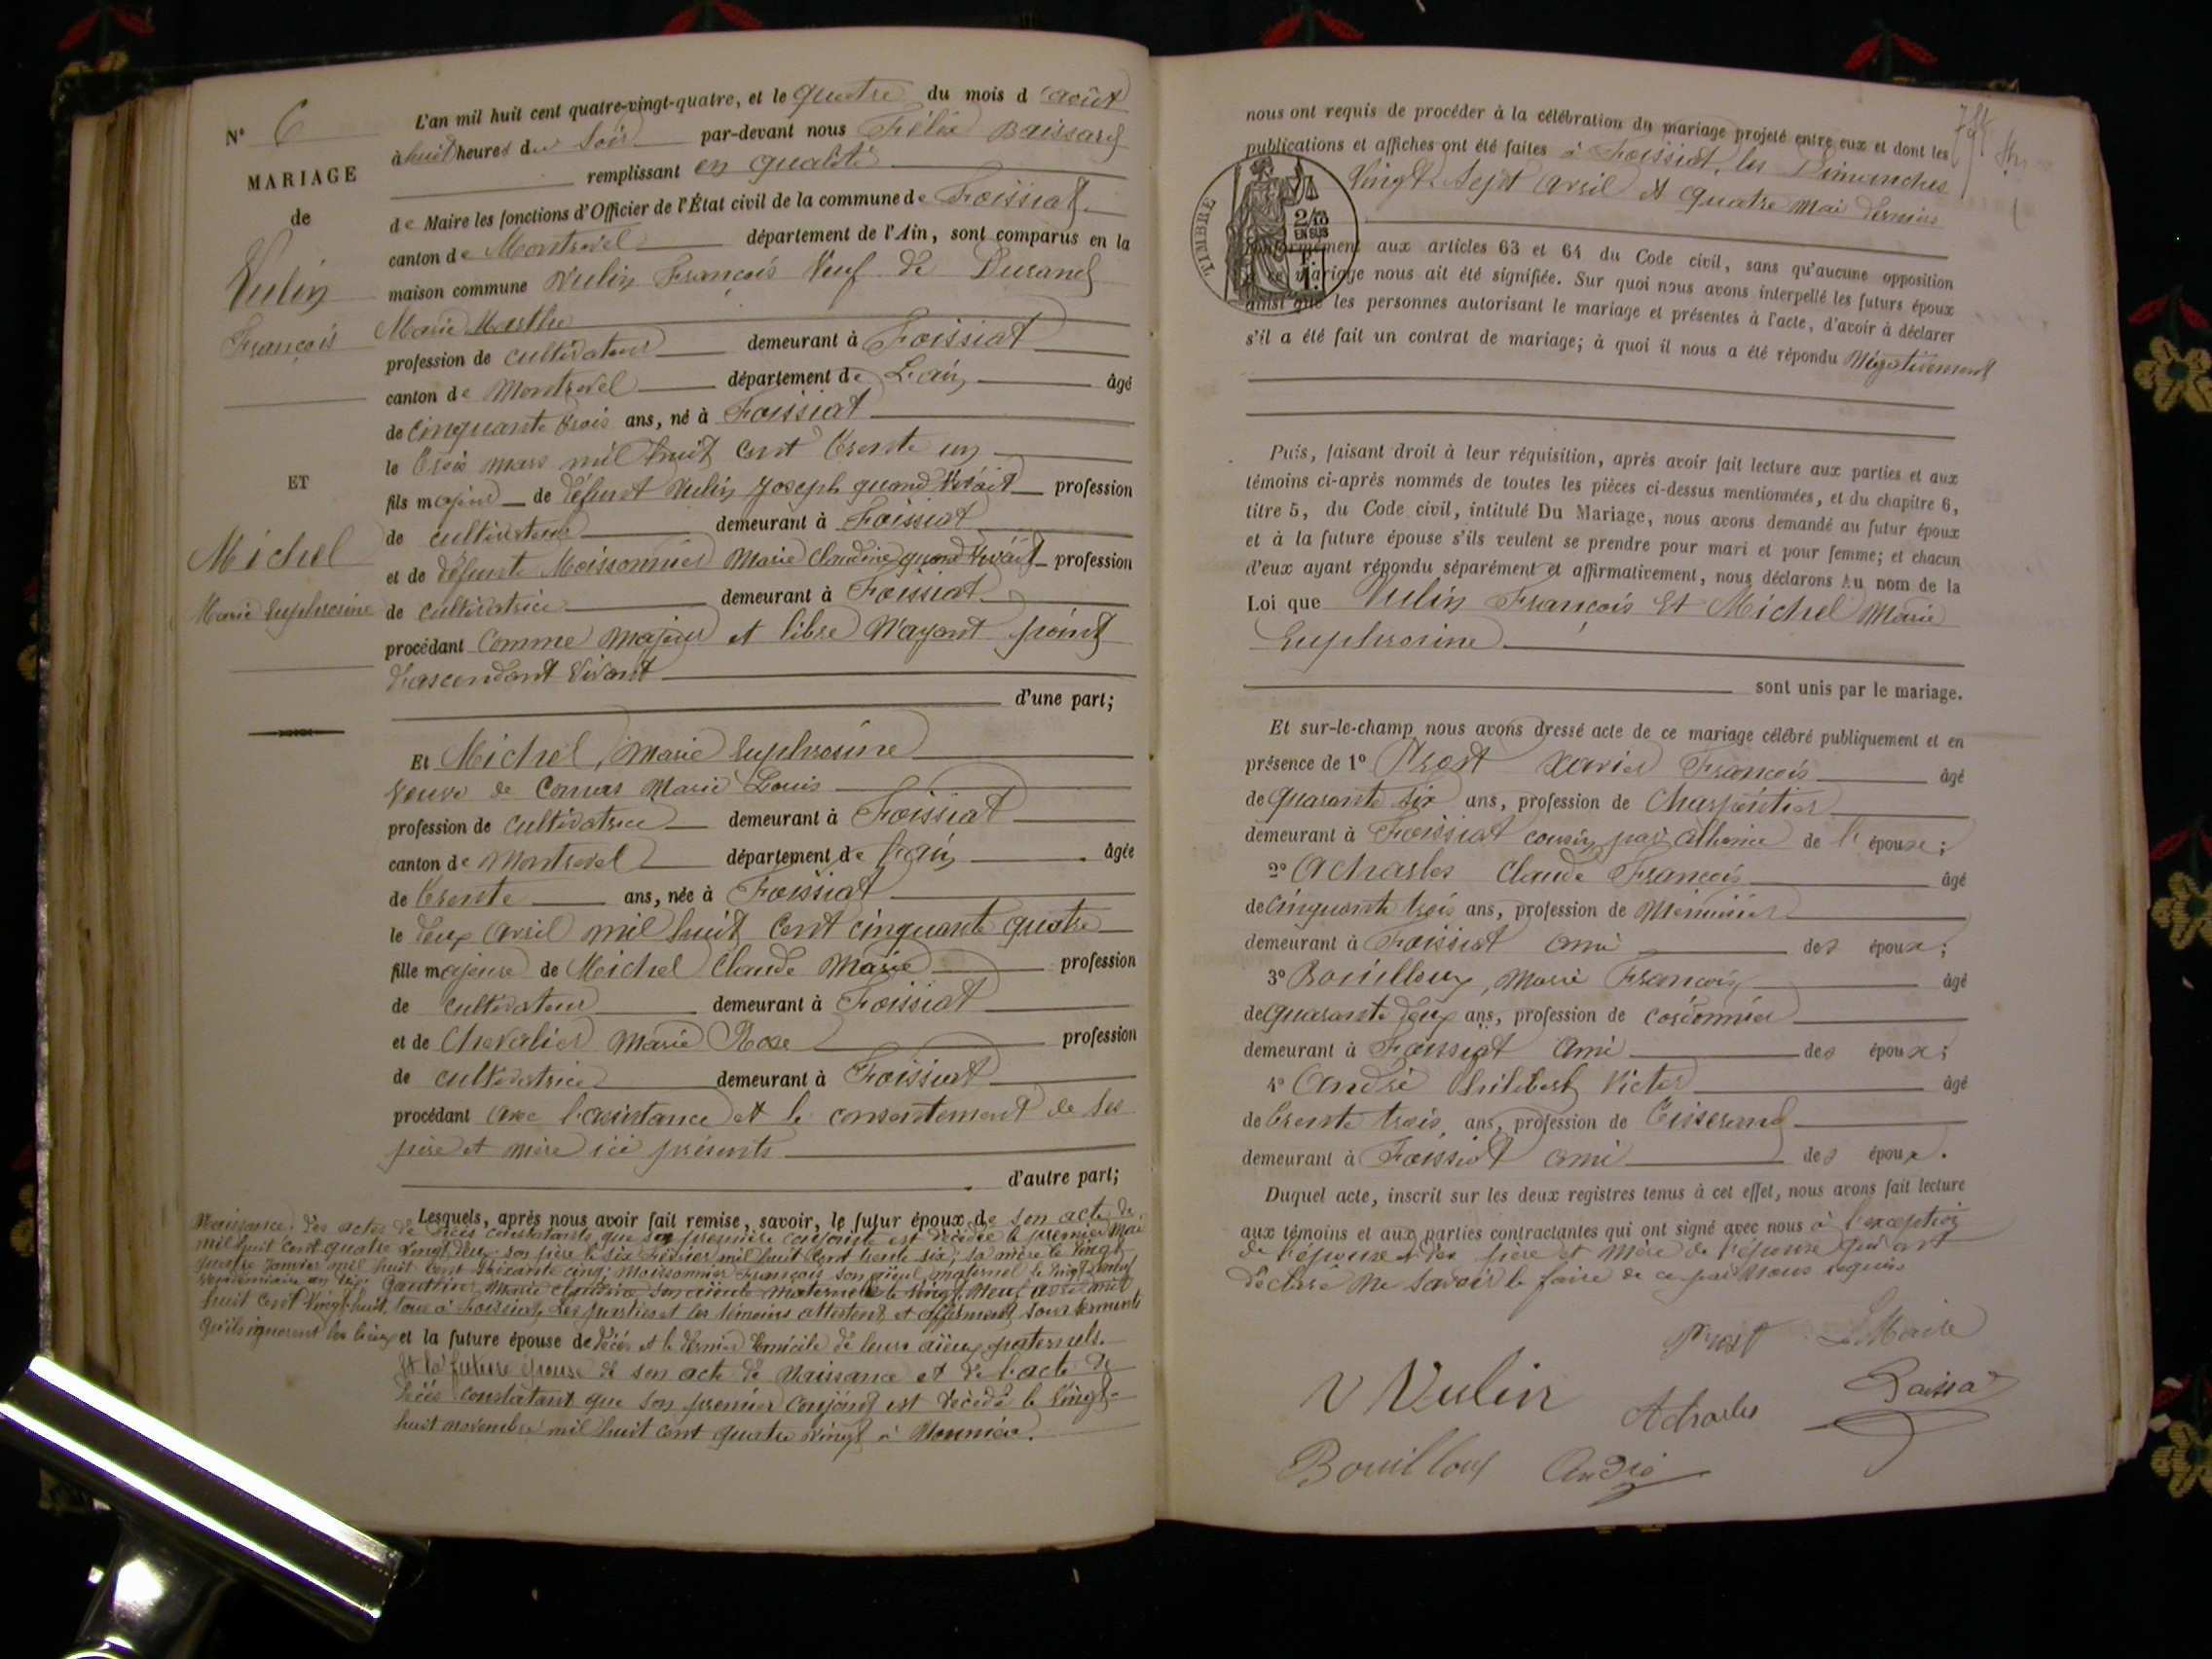 N° 6
MARIAGE
de
Vulin
François
ET
Michel
Marie Euphrosine
L'an mil huit cent quatre-vingt-quatre, et le quatre du mois d'août
à huit heures du soir par-devant nous Félix Baissard
remplissant en qualité
de Maire les fonctions d'Officier de l'État civil de la commune de Foissiat
canton de Montrevel département de l'Ain, sont comparus en la
maison commune Vulin François Veuf de Durand
Marie Marthe
profession de cultivateur demeurant à Foissiat
canton de Montrevel département de L'ain, âgé
de cinquante trois ans, né à Foissiat
le trois mars mil huit cent trente un
fils majeur de défunt Vulin Joseph quand vivait profession
de cultivateur demeurant à Foissiat
et de défunte Moissonnier Marie Claudine quand vivait profession
de cultivatrice demeurant à Foissiat
procédant comme majeur et libre n'ayant point
d'ascendant vivant
d'une part;
Et Michel, Marie Euphrosine
veuve de Comas Marie Louis
profession de cultivatrice demeurant à Foissiat
canton de Montrevel département de l'ain, âgée
de trente ans, née à Foissiat
le deux avril mil huit cent cinquante quatre
fille majeure de Michel Claude Marie profession
de cultivateur demeurant à Foissiat
et de Chevalier Marie Rose profession
de cultivatrice demeurant à Foissiat
procédant avec l'assistance et le consentement de ses
père et mère ici présents
d'autre part;
Lesquels, après nous avoir fait remise, savoir, le futur époux de son acte de
Naissance, des actes de décès constatants que sa première conjointe est décédée le premier mai
mil huit cent quatre vingt deux, son père le six février mil huit cent trente six; sa mère le vingt
quatre janvier mil huit cent soixante cinq; Moissonnier François son aïeul maternel le vingt neuf
vendémiaire an Marie Claudine son aïeule maternelle le vingt neuf avril mil
huit cent vingt huit, tous à Foissiat, Les parties et les témoins attestent et affirment sous serments
qu'ils ignorent les lieux et la future épouse de décès et le dernier domicile de leurs aïeux paternels.
Et la future épouse de son acte de Naissance et de l'acte de
décès constatant que son premier conjoint est décédé le vingt-
huit novembre mil huit cent quatre vingt à
nous ont requis de procéder à la célébration du mariage projeté entre eux et dont les
publications et affiches ont été faites à Foissiat, les Dimanches
Vingt-Sept avril et quatre mai derniers
TIMBRE
2/10
EN SUS
conformément aux articles 63 et 64 du Code civil, sans qu'aucune opposition
à ce mariage nous ait été signifiée. Sur quoi nous avons interpellé les futurs époux
ainsi que les personnes autorisant le mariage et présentes à l'acte, d'avoir à déclarer
s'il a été fait un contrat de mariage; à quoi il nous a été répondu Négativement
Puis, faisant droit à leur réquisition, après avoir fait lecture aux parties et aux
témoins ci-après nommés de toutes les pièces ci-dessus mentionnées, et du chapitre 6,
titre 5, du Code civil, intitulé Du Mariage, nous avons demandé au futur époux
et à la future épouse s'ils veulent se prendre pour mari et pour femme; et chacun
d'eux ayant répondu séparément et affirmativement, nous déclarons au nom de la
Loi que Vulin François Et Michel Marie
Euphrosine
sont unis par le mariage.
Et sur-le-champ nous avons dressé acte de ce mariage célébré publiquement et en
présence de 1° Prost Xavier François âgé
de quarante six ans, profession de Charpentier
demeurant à Foissiat cousin par alliance de l'épouse;
2° Acharles Claude François âgé
de cinquante trois ans, profession de Menuisier
demeurant à Foissiat ami des époux;
3° Bouilloux, Marie François, âgé
de quarante deux ans, profession de cordonnier
demeurant à Foissiat ami des époux;
4° André Philibert Victor âgé
de trente trois ans, profession de Tisserand
demeurant à Foissiat ami des époux.
Duquel acte, inscrit sur les deux registres tenus à cet effet, nous avons fait lecture
aux témoins et aux parties contractantes qui ont signé avec nous à l'exception
de l'épouse et des père et mère de l'épouse qui ont
déclaré ne savoir le faire de ce par nous requis
Prost Le Maire
V Vulin Acharles Baissard
Bouilloux André